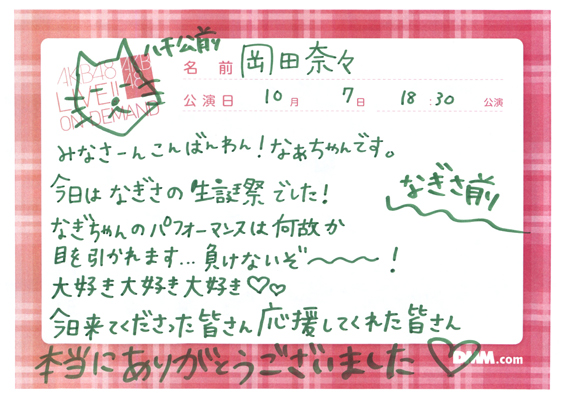 ハチ公前
AKB48
LIVE!!
ON DEMAND
AKB
48
名 前 岡田奈々
公演日 10月 7日 18:30 公演
みなさーんこんばんわん!なぁちゃんです。
今日は なぎさの 生誕祭 でした!
なぎさ前
なぎちゃんのパフォーマンスは何故か
目を引かれます…負けないぞ〜〜〜!
大好き大好き大好き♡♡
今日来てくださった皆さん 応援してくれた皆さん
本当にありがとうございました♡
DMM.com